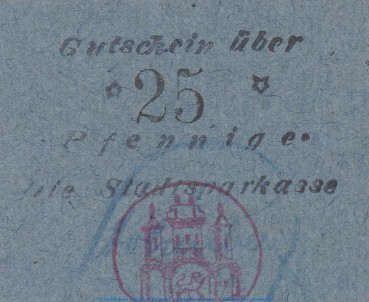 Gutschein über
25
Pfennige.
Die Stadtsparkasse